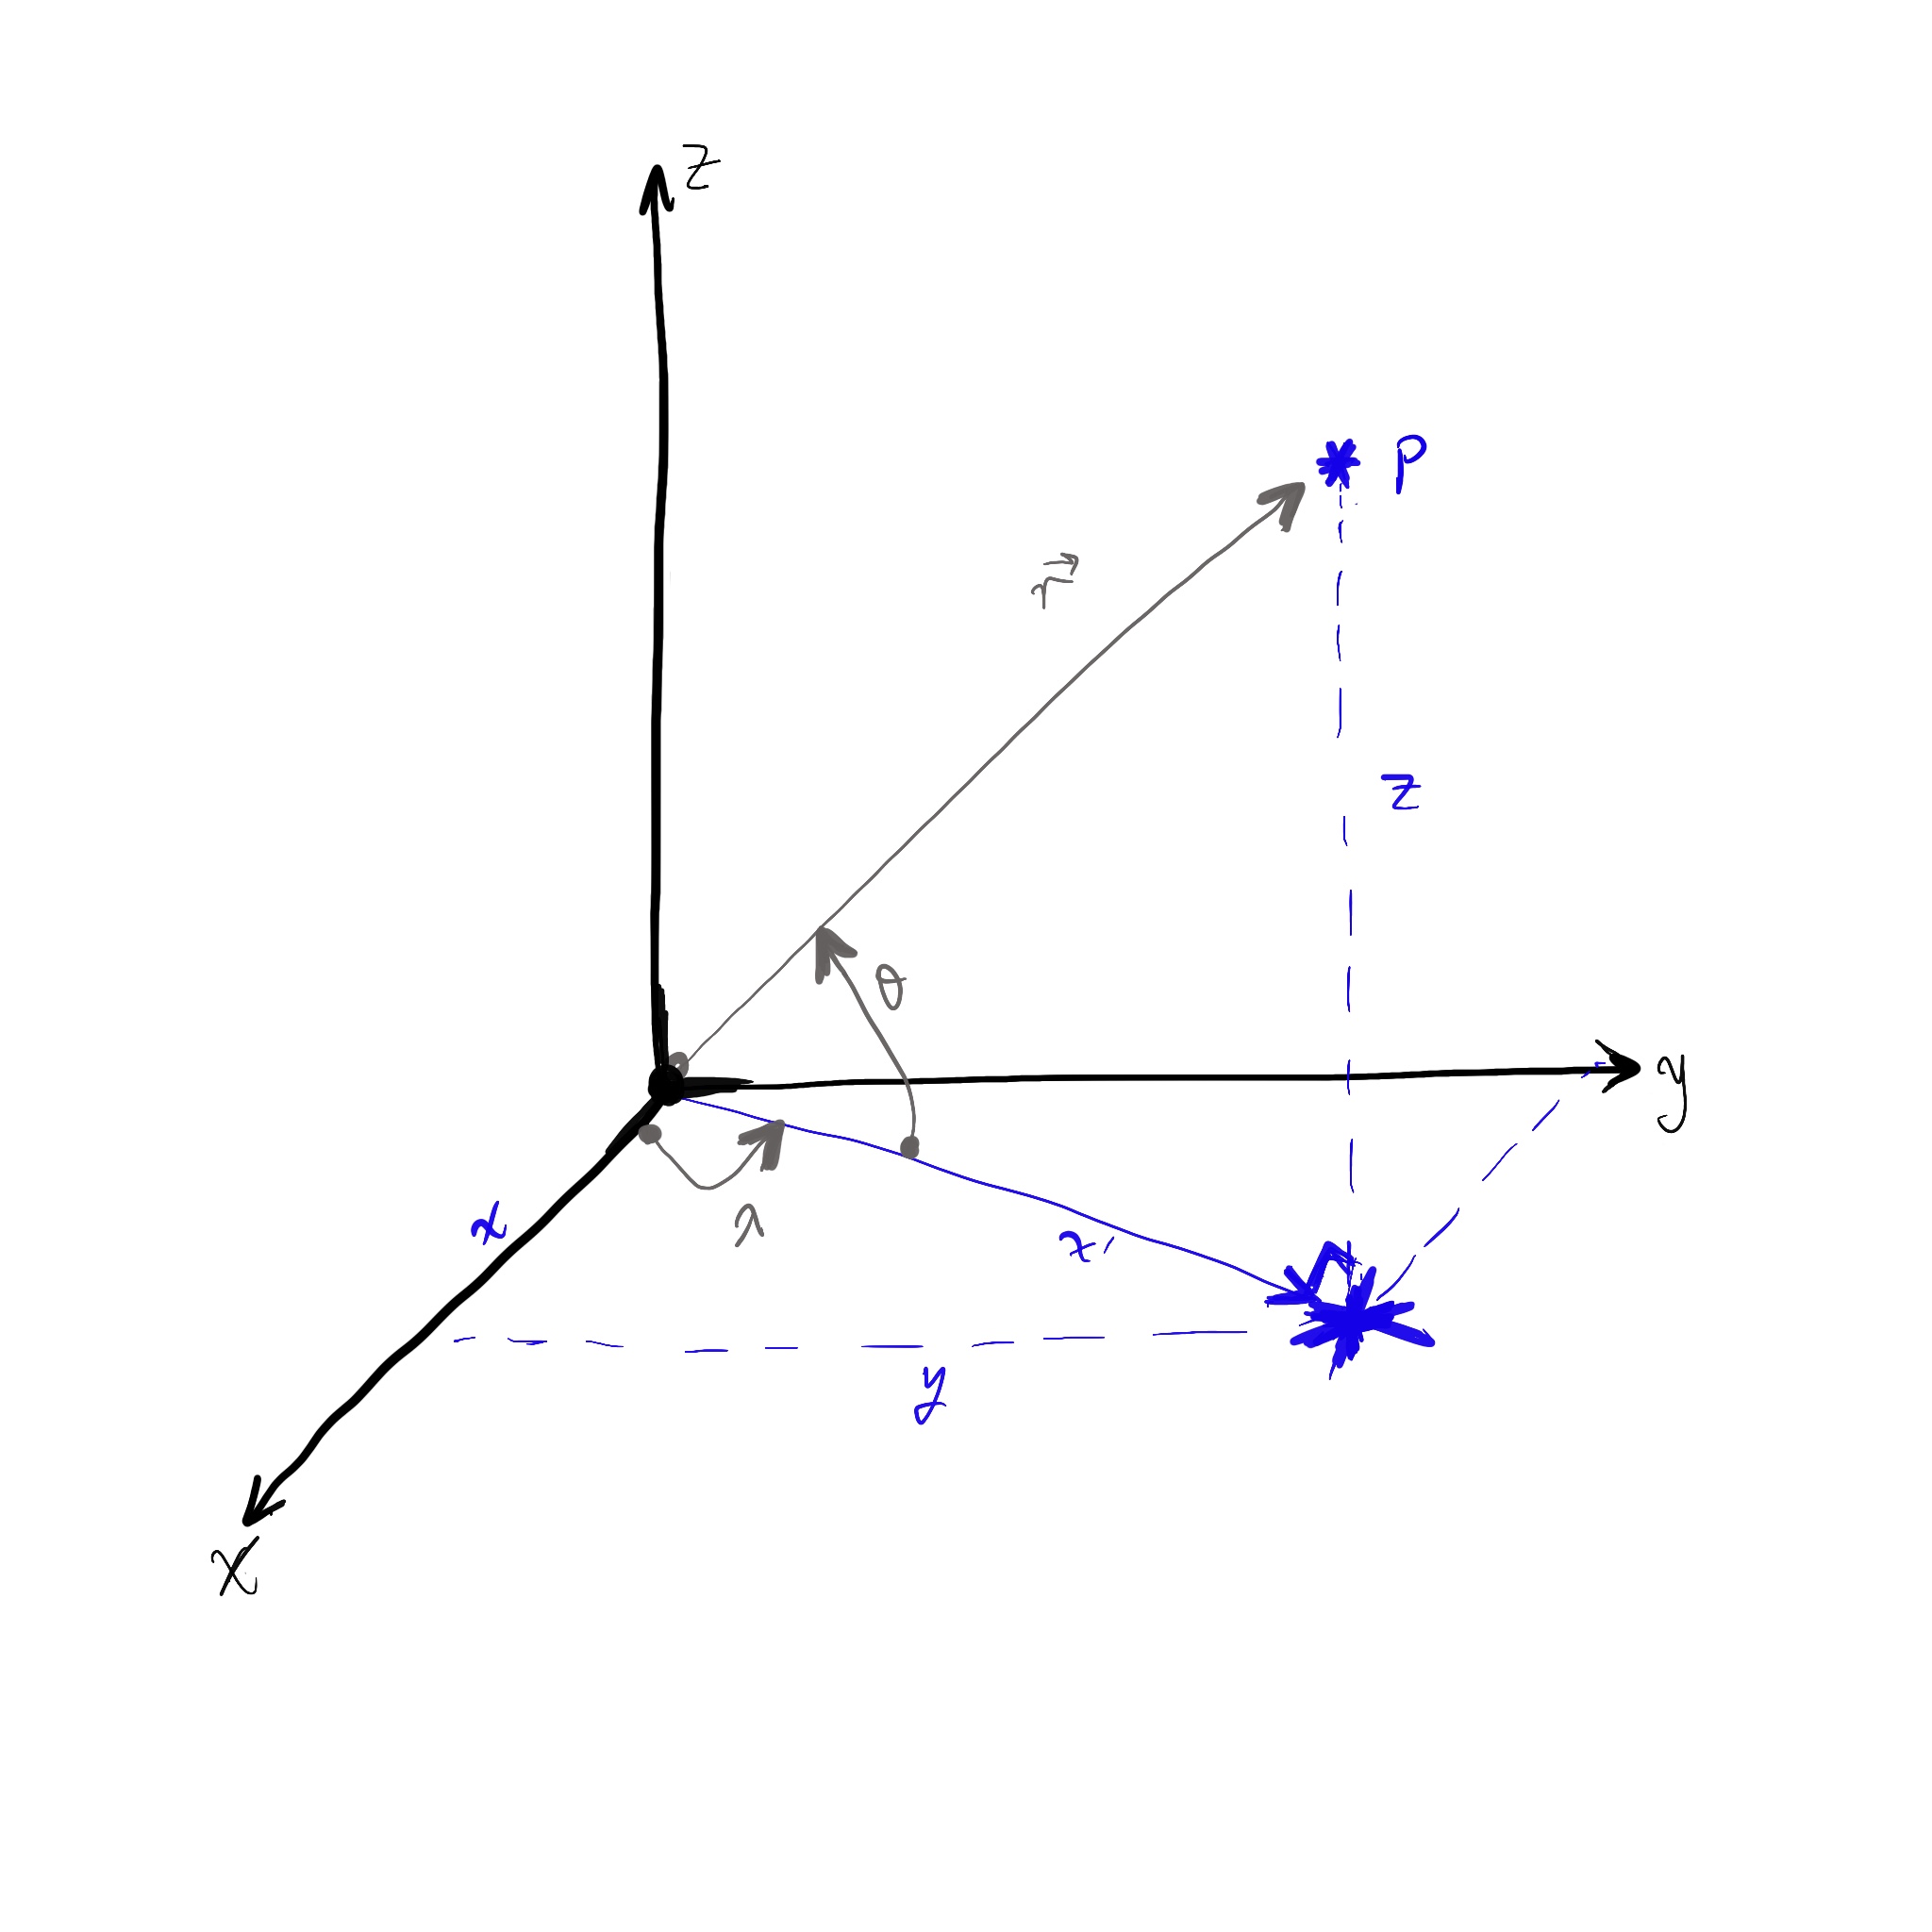 z
P
r⃗
z
θ
y
x
λ
x'
y
X